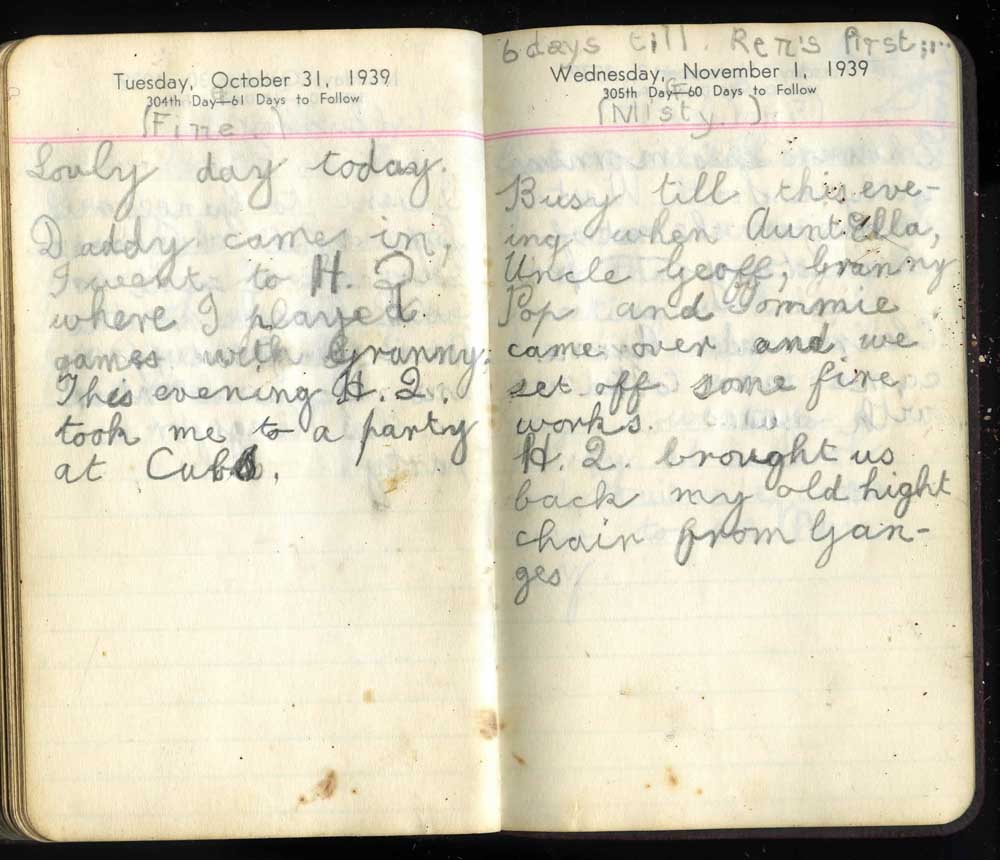 Tuesday, October 31, 1939
304th Day—61 Days to Follow
(Fine.)
Lovly day today.
Daddy came in,
I went to H. Q
where I played
games with Granny.
This evening H. Q.
took me to a party
at Cubs.
6 days till. Ren's first
Wednesday, November 1, 1939
305th Day—60 Days to Follow
(Misty.)
Busy till this eve-
ing when Aunt Ella,
Uncle Geoff, Granny
Pop and Tommie
came over and we
set off some fire
works.
H. Q. brought us
back my old hight
chair from Gan-
ges